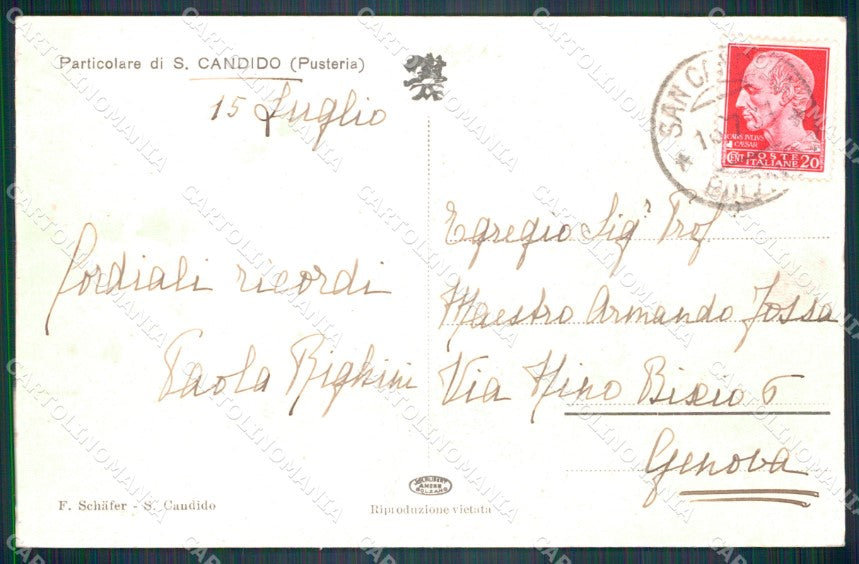 Particolare di S. CANDIDO (Pusteria)
15 Luglio
Cordiali ricordi
Paola Righini
SAN CAN
CAIVS IVLIVS
CAESAR
CENT POSTE ITALIANE 20
Egregio Sig^r Prof
Maestro Armando Fossa
Via Nino Bixio 6
Genova
F. Schäfer - S. Candido
Riproduzione vietata
CARTOLINOMANIA